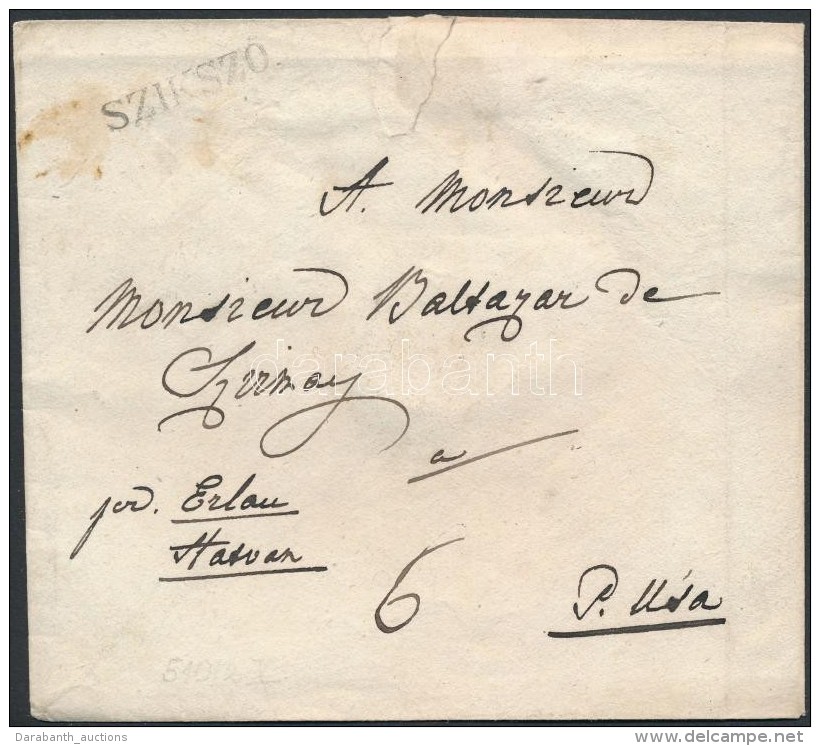 SZIKSZÓ.
A. Monsieur
Monsieur Baltazar de
Szirmay
a
per. Erlau
Hatvan
6
P. Usa
darabanth
Darabanth_auctions
delcampe.net